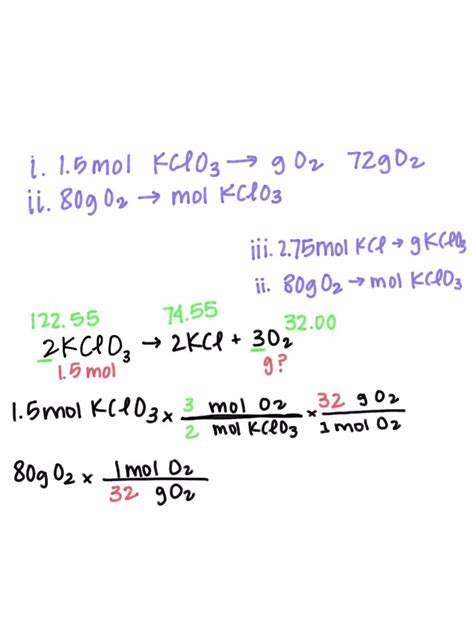 i. 1.5mol KClO3 → g O2 72gO2
ii. 80g O2 → mol KClO3
iii. 2.75mol KCl → gKClO3
ii. 80gO2 → mol KClO3
122.55 74.55 32.00
2KClO3 → 2KCl + 3O2
1.5mol g?
1.5mol KClO3 x 3 mol O2 / 2 mol KClO3 x 32 g O2 / 1 mol O2
80g O2 x 1mol O2 / 32 gO2